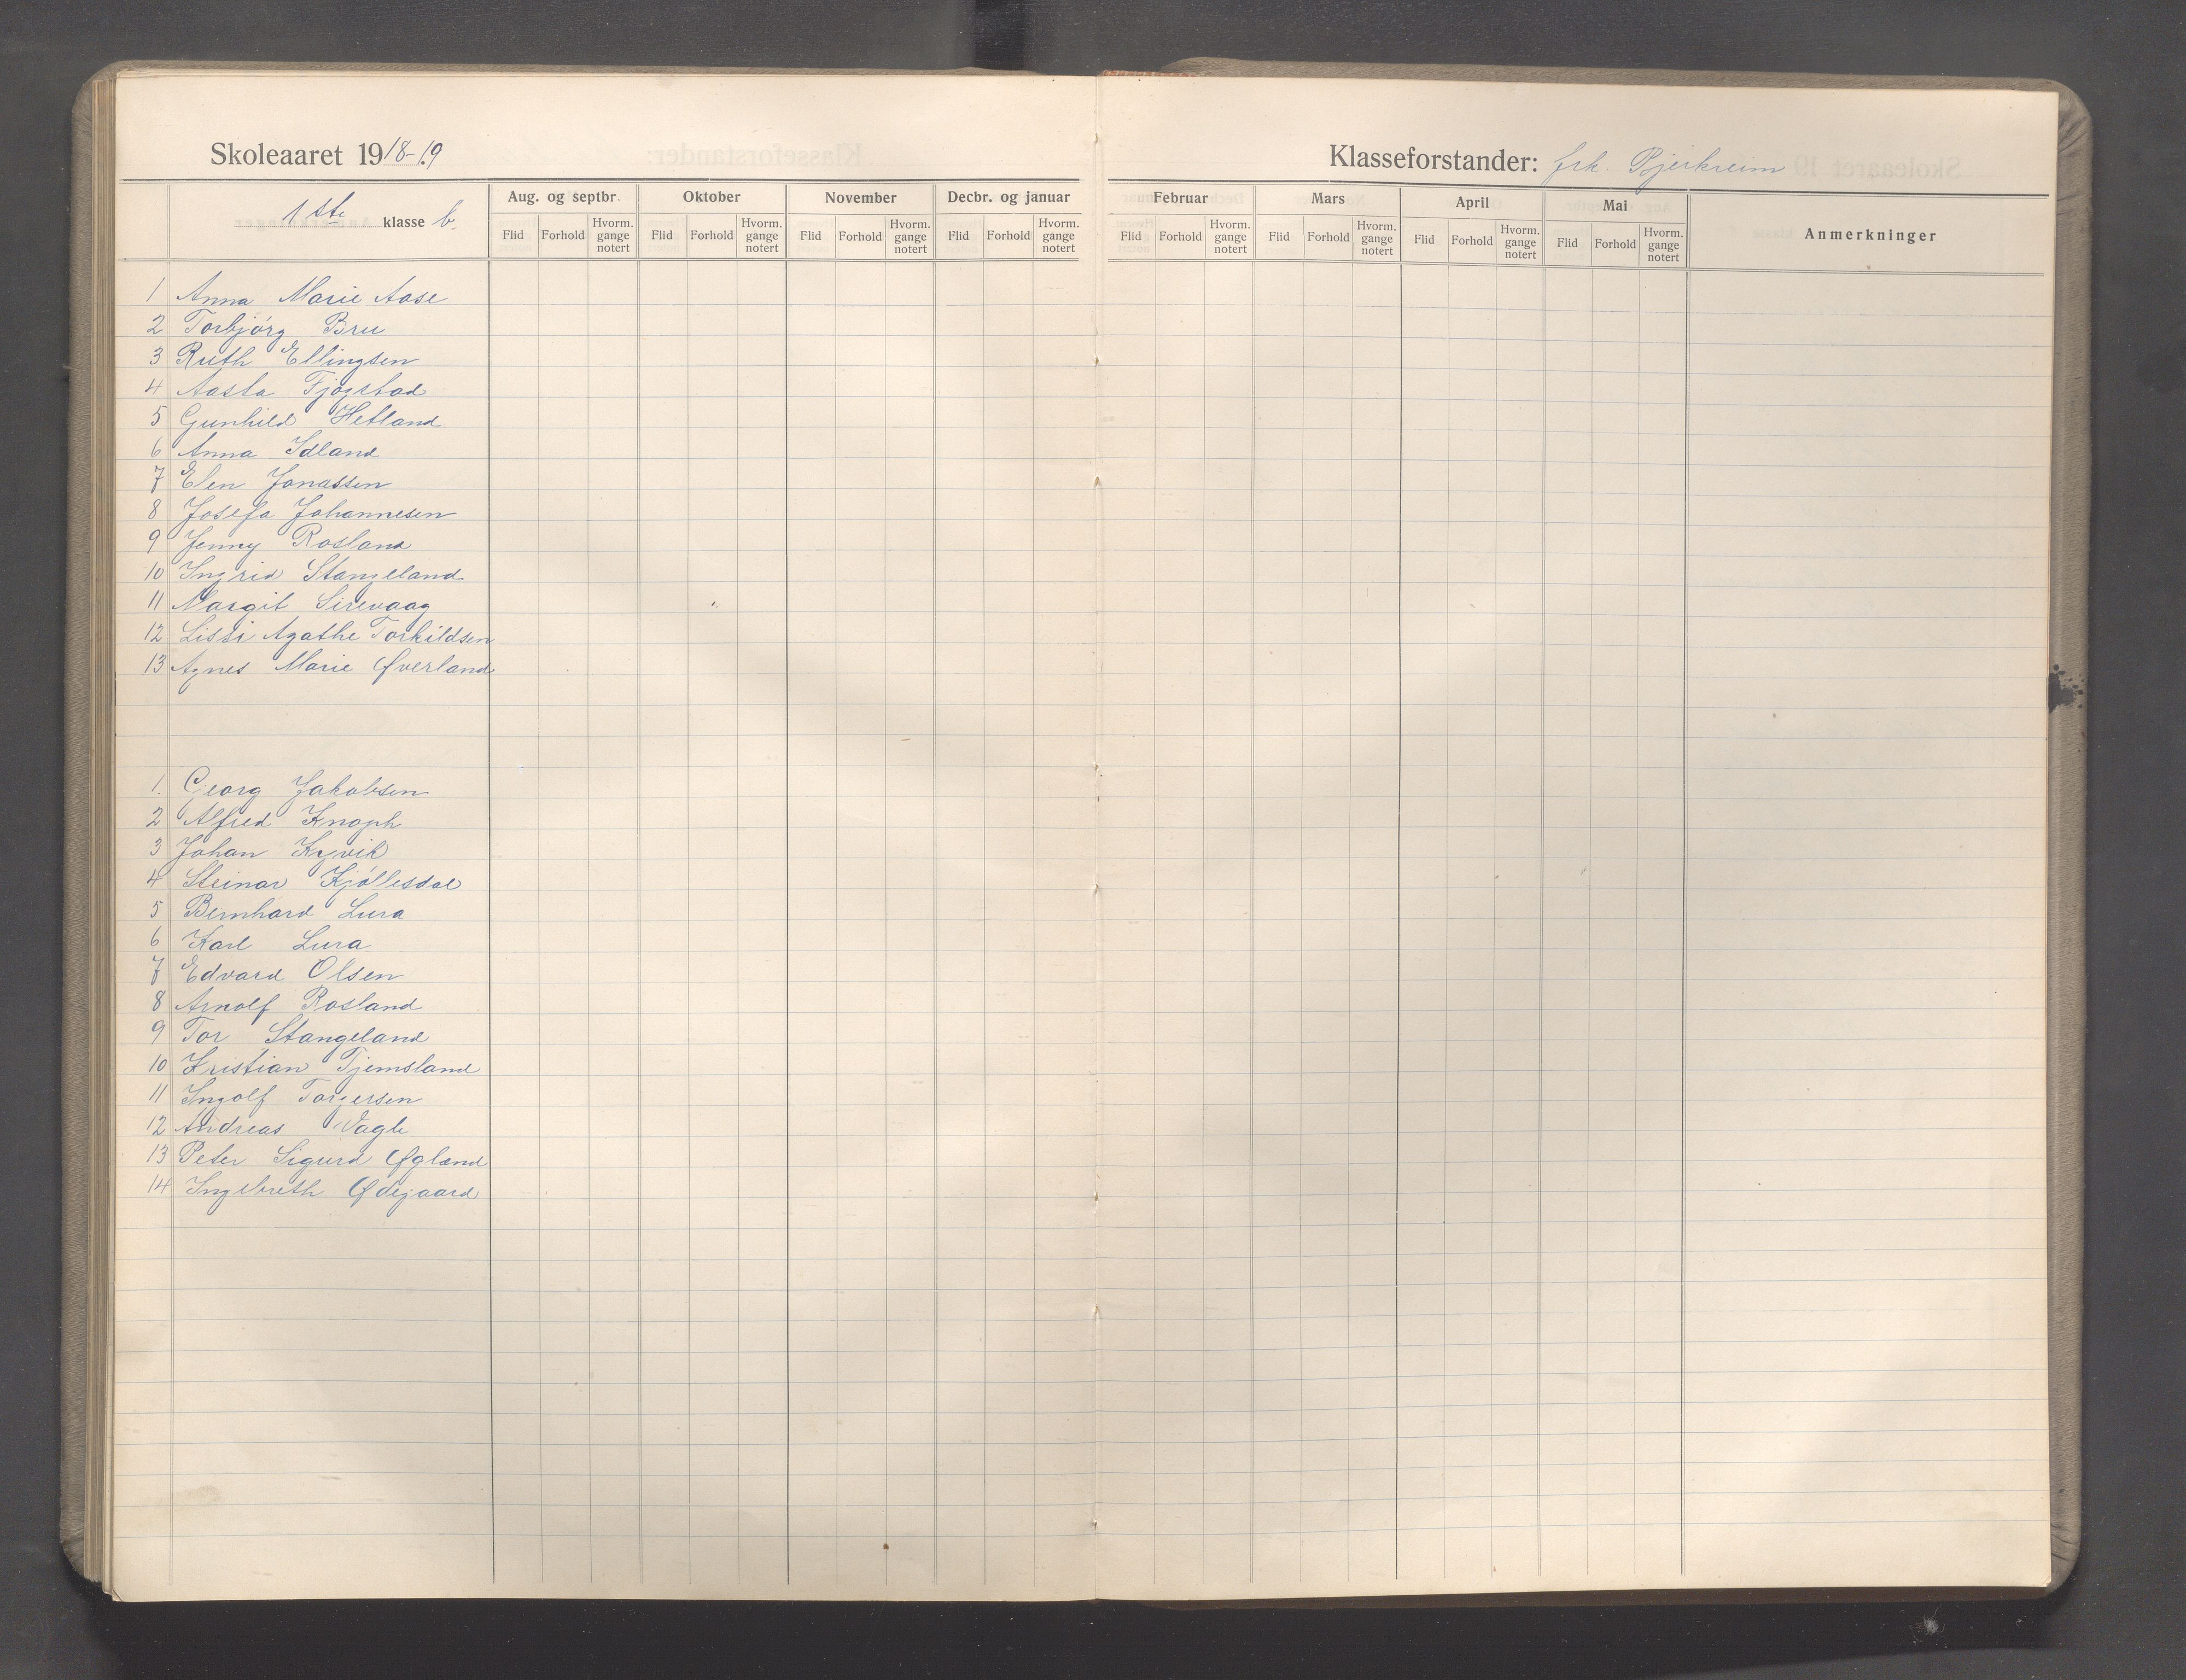 Skoleaaret 1918-19
Klasseforstander: frk. Bjerkreim
1ste klasse b.
Aug. og septbr. Oktober November Decbr. og januar Februar Mars April Mai Anmerkninger
Flid Forhold Hvorm. gange notert Flid Forhold Hvorm. gange notert Flid Forhold Hvorm. gange notert Flid Forhold Hvorm. gange notert Flid Forhold Hvorm. gange notert Flid Forhold Hvorm. gange notert Flid Forhold Hvorm. gange notert Flid Forhold Hvorm. gange notert
1 Anna Marie Aase
2 Torbjørg Bru
3 Ruth Ellingsen
4 Aasta Fjogstad
5 Gunhild Hetland
6 Anna Idland
7 Elen Jonassen
8 Josefa Johannesen
9 Jenny Rosland
10 Ingrid Stangeland
11 Margit Sirevaag
12 Lissi Agathe Torkildsen
13 Agnes Marie Øverland
1. Georg Jakobsen
2 Alfred Knoph
3 Johan Kyvik
4 Steinar Kjøllesdal
5 Bernhard Lura
6 Karl Lura
7 Edvard Olsen
8 Arnolf Rosland
9 Tor Stangeland
10 Kristian Tjemsland
11 Ingolf Torgersen
12 Andreas Vagle
13 Peter Sigurd Øgland
14 Ingebreth Ødegaard